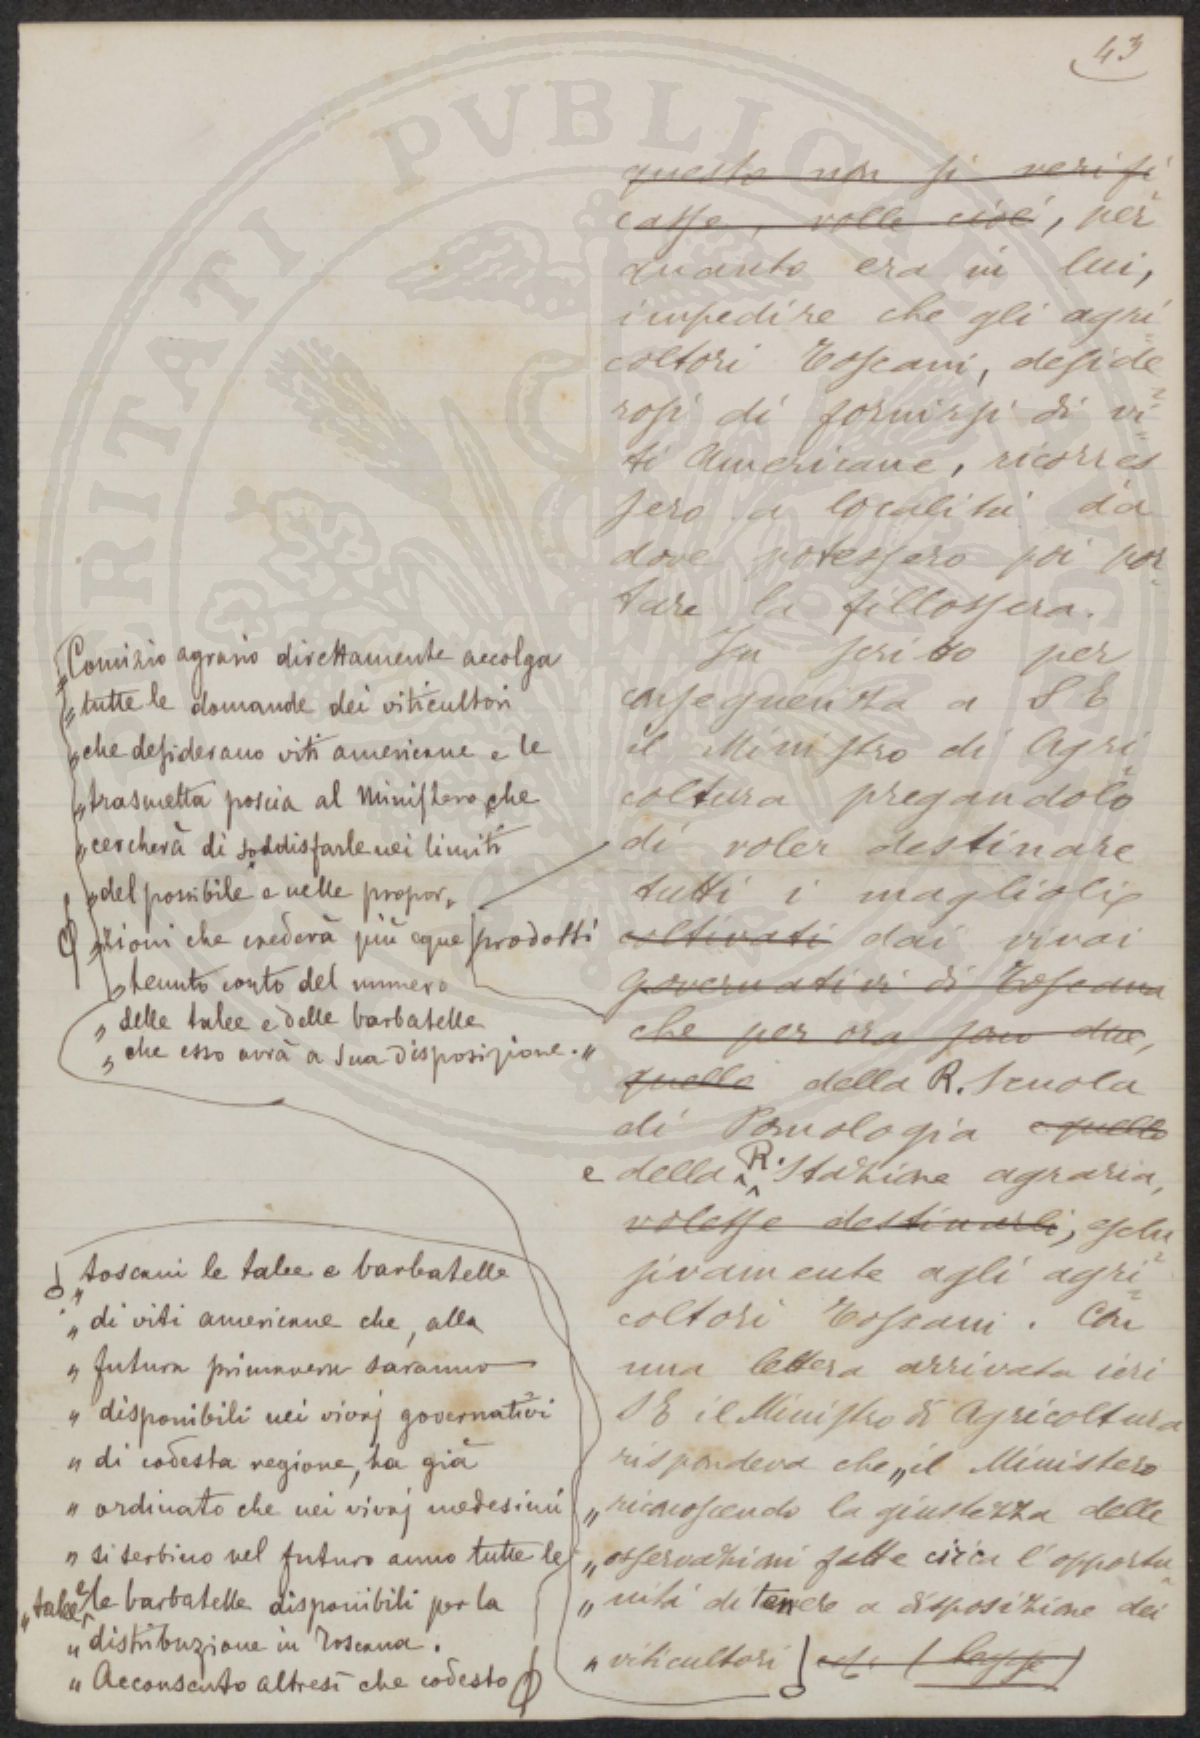 43
questo non si verifi
casse, volle cioè, per
quanto era in lui,
impedire che gli agri
coltori Toscani, deside
rosi di fornirsi di vi
ti Americane, ricorres
sero a località da
dove potessero poi por
tare la fillossera.
In scritto per
conseguenza a S E
il Ministro di Agri
coltura pregandolo
di voler destinare
tutti i maglioli
prodotti
coltivati dai vivai
governativi di Toscana
che per ora sono due,
quello della R. Scuola
di Pomologia e quello
e della R. Stazione agraria,
volesse destinarli, esclu
sivamente agli agri
coltori Toscani. Con
una lettera arrivata ieri
S E il Ministro di Agricoltura
rispondeva che „il Ministero
„ riconoscendo la giustezza delle
„ osservazioni fatte circa l'opportu
„ nità di tenere a disposizione dei
„ viticultori
„ toscani le talee e barbatelle
„ di viti americane che, alla
„ futura primavera saranno
„ disponibili nei vivaj governativi
„ di codesta regione, ha già
„ ordinato che nei vivaj medesimi
„ si serbino nel futuro anno tutte le
„ talee e le barbatelle disponibili per la
„ distribuzione in Toscana.
„ Acconsento altresì che codesto
„ Comizio agrario direttamente accolga
„ tutte le domande dei viticultori
„ che desiderano viti americane e le
„ trasmetta poscia al Ministero, che
„ cercherà di soddisfarle nei limiti
„ del possibile e nelle propor„
„ zioni che crederà più eque
„ tenuto conto del numero
„ delle talee e delle barbatelle
„ che esso avrà a sua disposizione.„
PVBLICAE
VERITATI